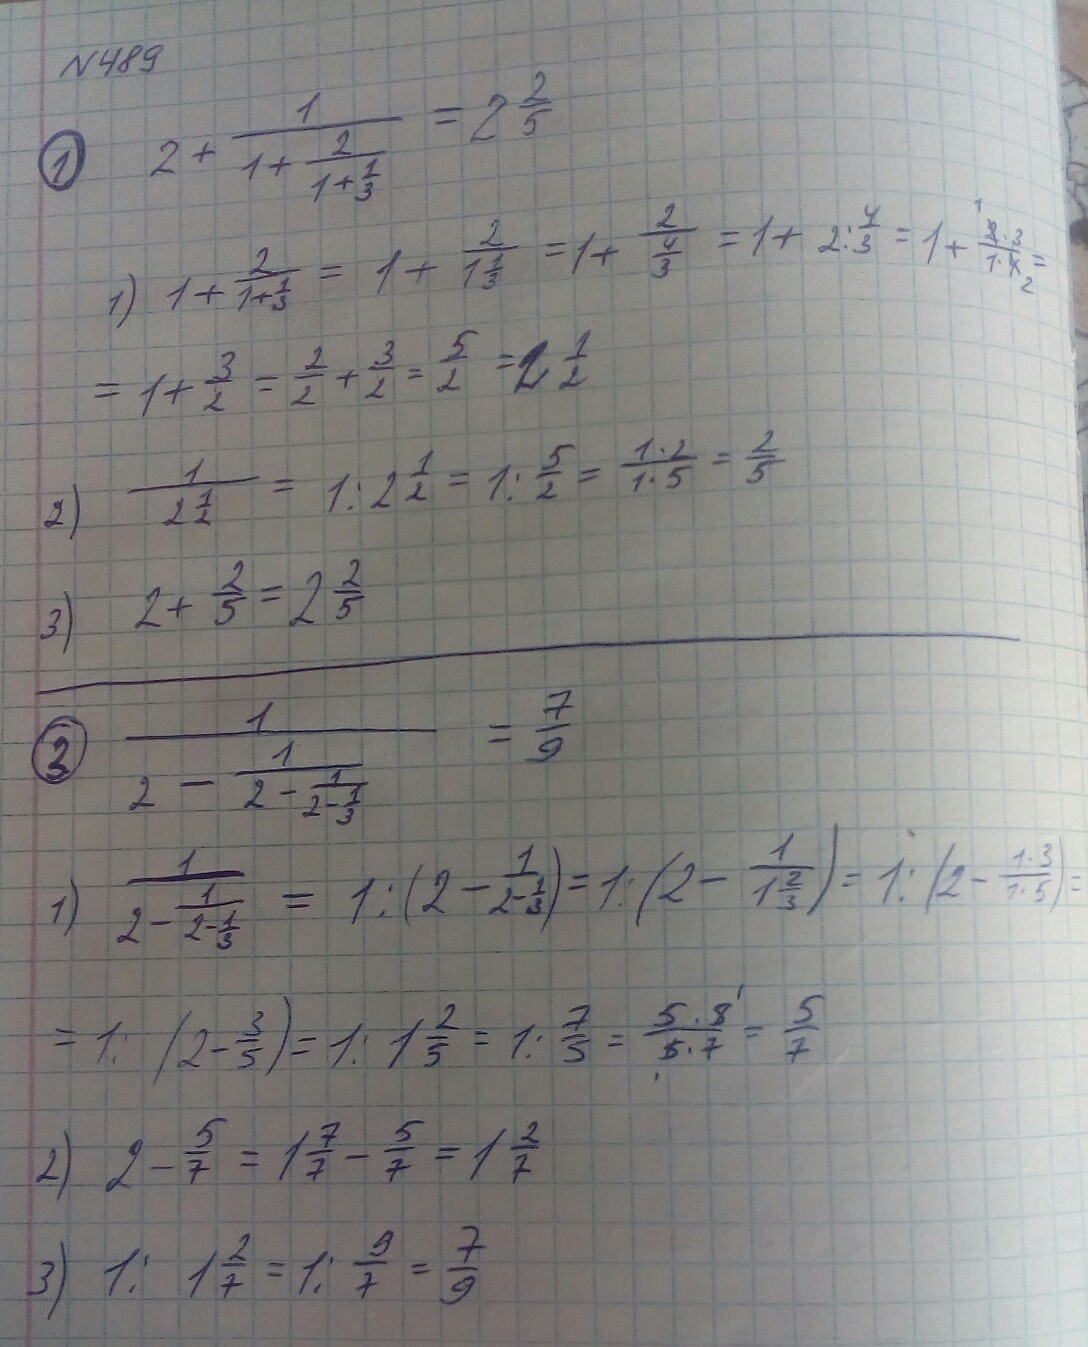 N489
① 2 + 1/(1 + 2/(1 + 1/3)) = 2 2/5
1) 1 + 2/(1 + 1/3) = 1 + 2/(1 1/3) = 1 + 2/(4/3) = 1 + 2 : 4/3 = 1 + (2·3)/(1·4) =
= 1 + 3/2 = 2/2 + 3/2 = 5/2 = 2 1/2
2) 1/(2 1/2) = 1 : 2 1/2 = 1 : 5/2 = (1·2)/(1·5) = 2/5
3) 2 + 2/5 = 2 2/5
② 1/(2 - 1/(2 - 1/(2 - 1/3))) = 7/9
1) 1/(2 - 1/(2 - 1/3)) = 1 : (2 - 1/(2 - 1/3)) = 1 : (2 - 1/(1 2/3)) = 1 : (2 - (1·3)/(1·5)) =
= 1 : (2 - 3/5) = 1 : 1 2/5 = 1 : 7/5 = = 5/7
2) 2 - 5/7 = 1 7/7 - 5/7 = 1 2/7
3) 1 : 1 2/7 = 1 : 9/7 = 7/9